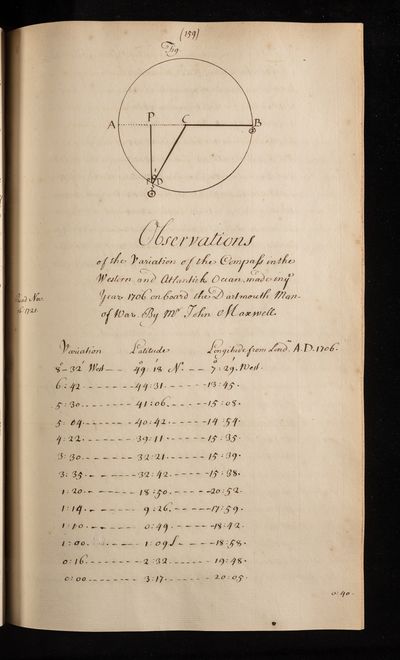 (159)
Fig
A P C B
D
Observations
of the Variation of the Compass in the
Western and Atlantick Ocean, made in yͤ
Year 1706 on board the Dartmouth Man-
of War. By Mͬ John Maxwell.
Read Nov.
1721.
Variation Latitude Longitude from Lond.ⁿ A.D. 1706.
8°-32' West-- 49°:18' N.-- 7°:29' West.
6:42.------44:31.------13:45.
5:30.------41:06.------15:08.
5:04.------40:42.------14:54.
4:22.------39:11------15:35.
3:30.------32:21.------15:39.
3:35.------32:42.------15:38.
1:20.------18:50.------20:52.
1:14.------9:26.------17:59.
1:10.------0:49.------18:42.
1:00.------1:09 S----18:58.
0:16.------2:32.------19:48.
0:00.------3:17.------20:05.
0:40.